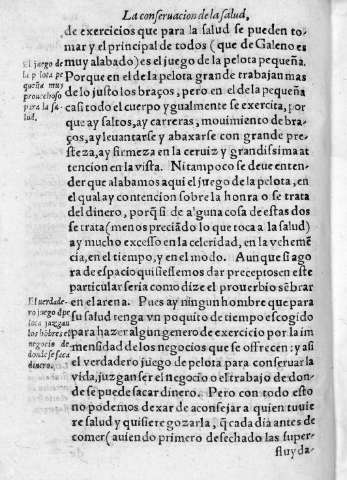 La conseruacion de la salud,
de exercicios que para la salud se pueden to-
mar y el principal de todos (que de Galeno es
muy alabado) es el juego de la pelota pequeña.
Porque en el de la pelota grande trabajan mas
de lo justo los braços, pero en el de la pequeña
casi todo el cuerpo ygualmente se exercita, por
que ay saltos, ay carreras, mouimiento de bra-
ços, ay leuantarse y abaxarse con grande pre-
steza, ay firmeza en la ceruiz y grandissima at
tencion en la vista. Ni tampoco se deue enten-
der que alabamos aqui el juego de la pelota, en
el qual ay contencion sobre la honra o se trata
del dinero, porq̃ si de alguna cosa de estas dos
se trata (menos preciãdo lo que toca a la salud)
ay mucho excesso en la celeridad, en la vehemẽ
cia, en el tiempo, y en el modo. Aunque si ago
ra de espacio quisiessemos dar preceptos en este
particular seria como dize el prouerbio sẽbrar
en el arena. Pues ay ningun hombre que para
su salud tenga vn poquito de tiempo escogido
para hazer algun genero de exercicio por la im
mensidad de los negocios que se offrecen: y assi
el verdadero juego de pelota para conseruar la
vida, juzgan ser el negocio o el trabajo de don-
de se puede sacar dinero. Pero con todo esto
no podemos dexar de aconsejar a quien tuuie
re salud y quisiere gozarla, q̃ cada dia antes de
comer (auiendo primero desechado las super-
fluyda-
El juego de
la pelota pe
queña muy
prouechoso
para la sa-
lud.
El verdade-
ro juego d̃ pe
lota juzgan
los hõbres el
negocio de
donde se saca
dinero.